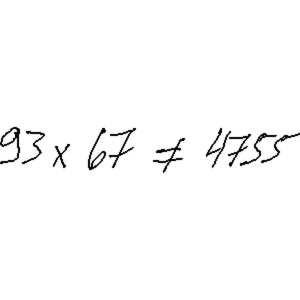 93 x 67 ≠ 4755